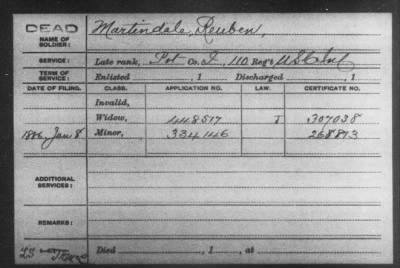 DEAD
NAME OF SOLDIER: Martindale, Reuben,
SERVICE: Late rank, Pvt Co. I, 110 Reg't U.S.C. Inf
TERM OF SERVICE: Enlisted , 1 Discharged , 1
DATE OF FILING. CLASS. APPLICATION NO. LAW. CERTIFICATE NO.
Invalid,
Widow, 448517 J 307038
1886, Jan 8 Minor, 334146 268873
ADDITIONAL SERVICES:
REMARKS:
Died , 1 , at